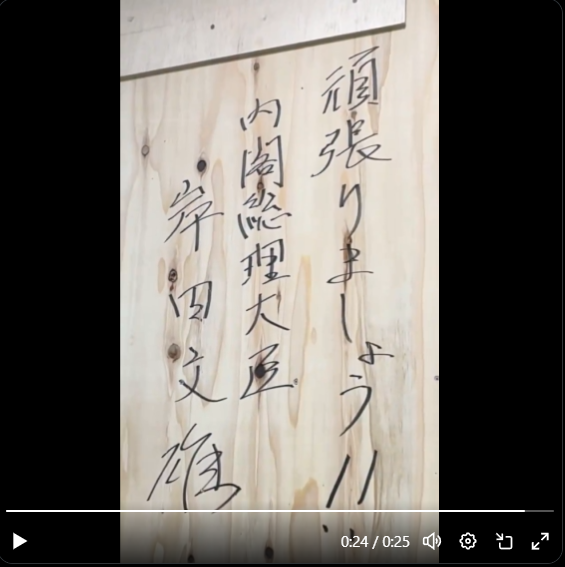 頑張りましょう!!
内閣総理大臣
岸田文雄
0:24 / 0:25